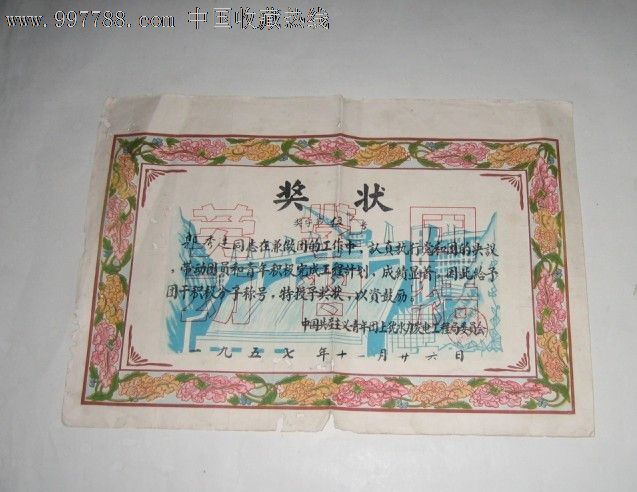 www.997788.com 中国收藏热线
奖状
奖字第 号
同志在兼做团的工作中，认真执行党和团的决议
，带动团员和青年积极完成工程计划，成绩显著，因此给予
团干积极分子称号，特授予奖状，以资鼓励。
中国共产主义青年团上犹水力发电工程局委员会
一九五七年十一月廿六日